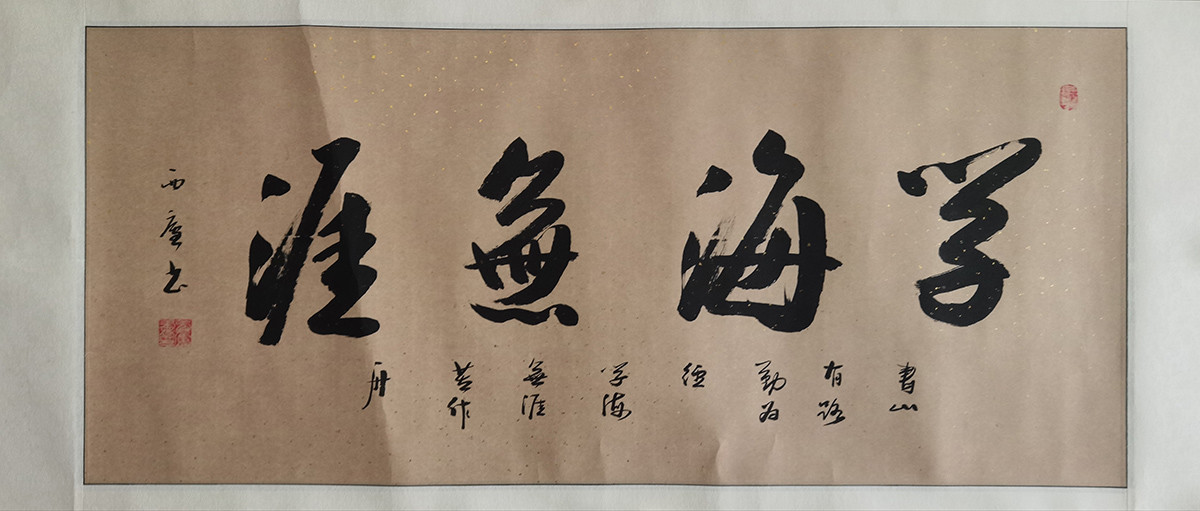 学海無涯
書山
有路
勤为
径
学海
無涯
苦作
舟
西廬书